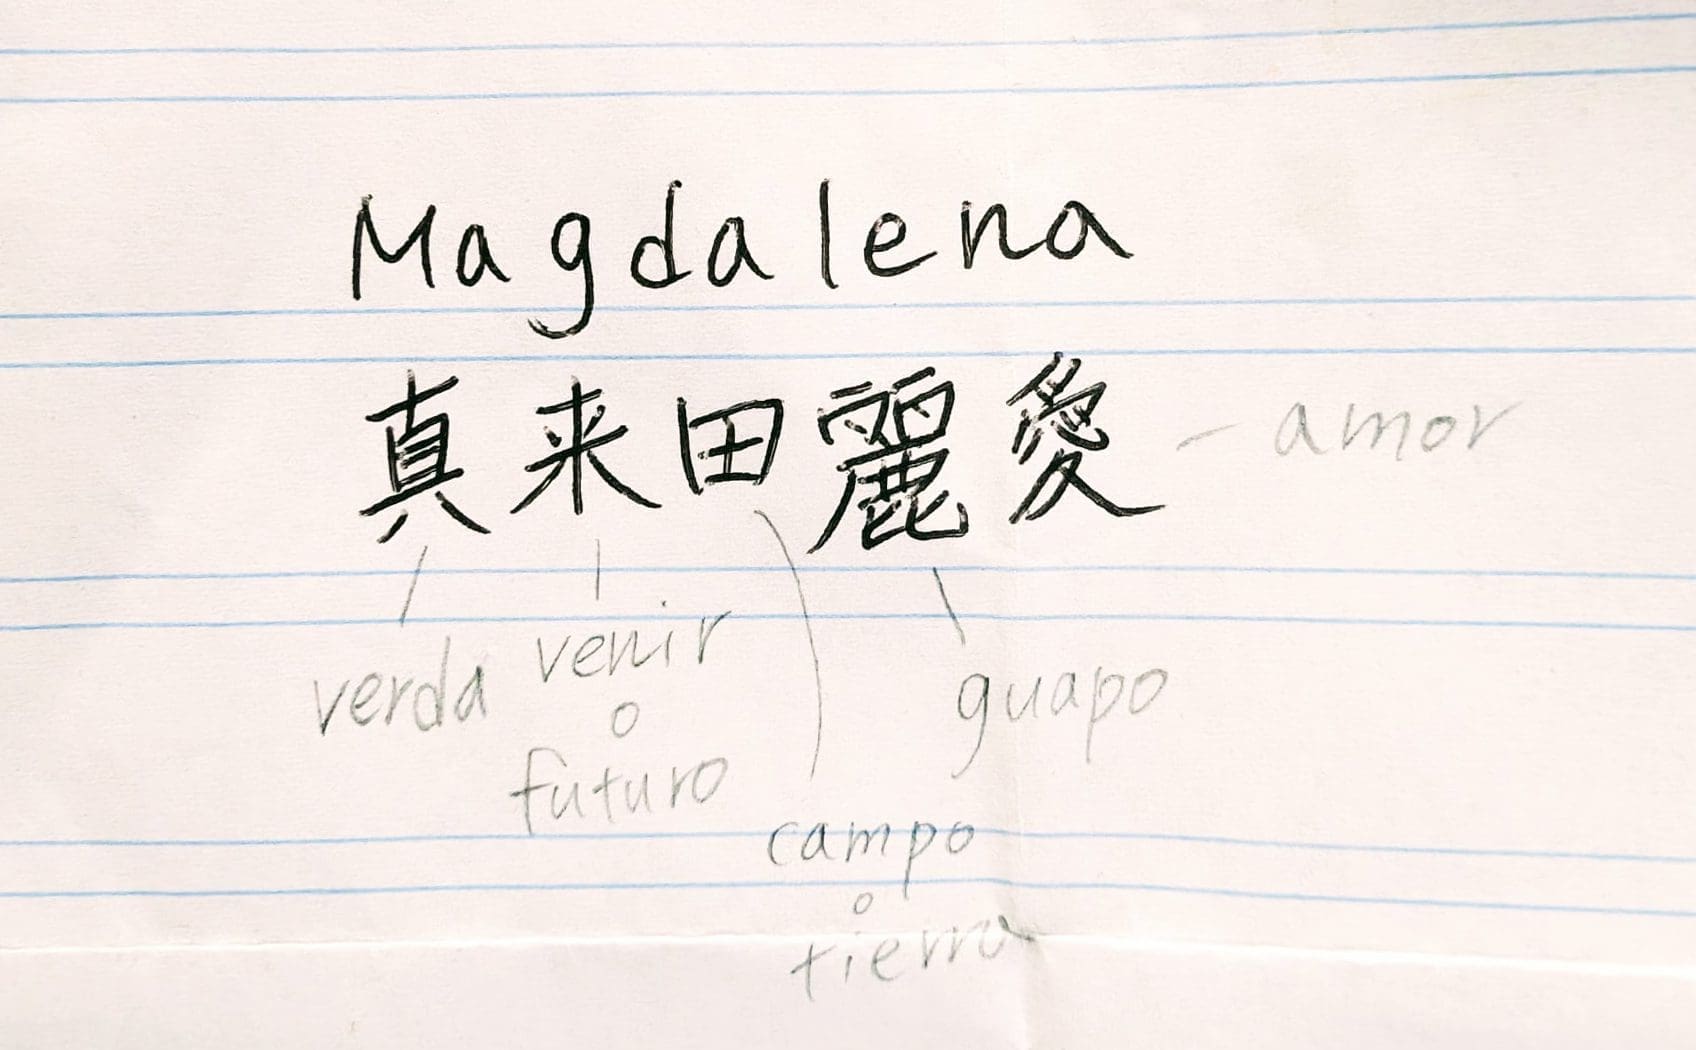 Magdalena
真来田麗愛 - amor
verda venir
o
futuro
guapo
campo
o
tierra